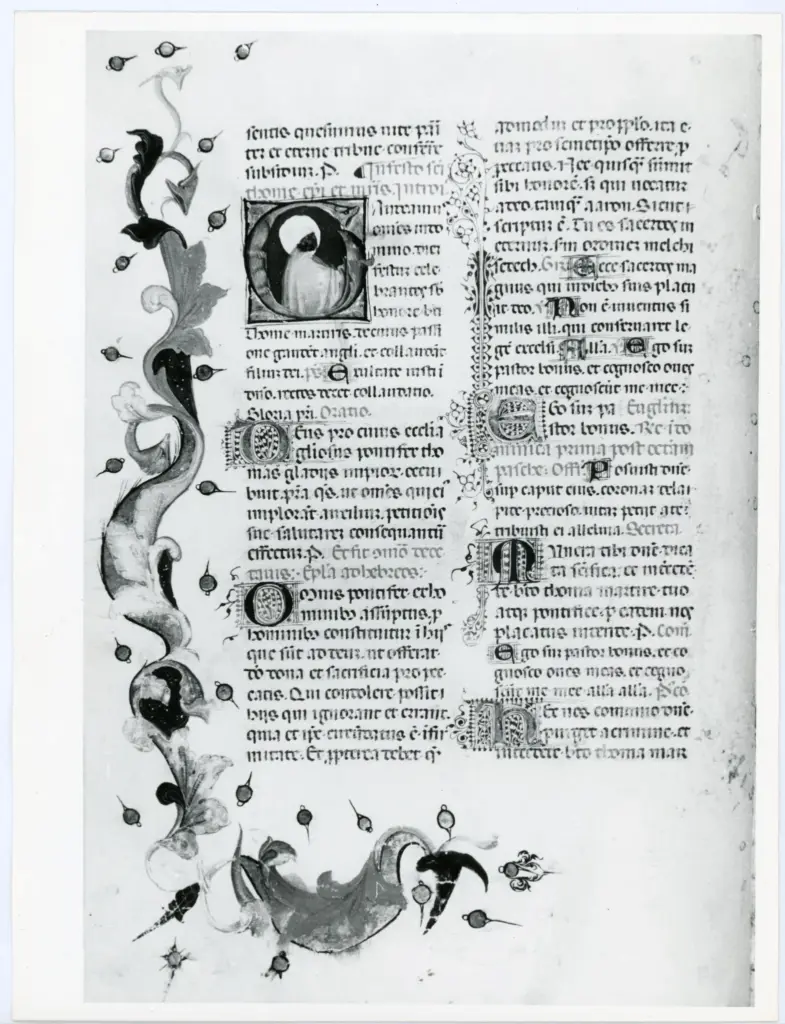 sentis quesumus uite p̄n̄
ter et eterne tribue conferre
subsidiū. P. In festo sc̄i
thome ep̄i et m̄ris. Introi
Audeamus
omes in do
mino diē
festū cele
brantes sb
honore bt̄i
Thome martiris. de cuius passi
one gaudēt angli. et collaudāt
filiū dei. ps̄ Exultate iusti i
dn̄o. rectos decet collaudatio.
Gloria pr̄i. Oratio.
Deus pro cuius ecclia
gliosus pontifex tho
mas gladiis impior. occu
buit. pr̄a q̄s. ut om̄es qui ei
implorāt auxiliū. petitiōis
sue salutarē consequantur
effectum. P. Et fit
Ep̄la ad hebreos.
Omnis pontifex ex ho
minibȝ assūptus. p
hominibȝ constituitur ī hijs
que sūt ad deū. ut offerat
dona et sacrificia pro pec
catis. Qui condolere possit i
hijs qui ignorant et errant.
quia et ip̄e circūdatus ē īfir
mitate. Et p̄pterea debet q̄
admodū et pro pp̄lo. ita e
tiā pro semetip̄o offerre. p
peccatis. Nec quisq̄ sumit
sibi honorē. sȝ qui uocatur
a deo. tanq̄ aaron. Sicut i
scriptum ē. Tu es sacerdos in
eternū. sm̄ ordinem melchi
sedech. Gr̄ Ecce sacerdos ma
gnus qui in diebȝ suis placu
it deo. V Non ē inuentus si
milis illi. qui conseruaret le
gē excelsi. Alla. V Ego sū
pastor bonus. et cognosco oues
meas. et cognoscūt me mee.
Ego sū pa Eugliū.
stor bonus. Re i do
minica prima post octauā
pasche. Off Posuisti dn̄e
sup caput eius. coronā de lapi
de precioso. uitā petiit a te
tribuisti ei alleluia. Secreta.
Munera tibi dn̄e dica
ta sc̄ifica. et intercedē
te bt̄o thoma martire tuo
atq̄ pontifice. p eadem nos
placatus intende. P. Com̄.
Ego sum pastor bonus. et co
gnosco oues meas. et cogno
scūt me mee alla alla. P. co
Hec nos communio dn̄e.
purget a crimine. et
intercedente bt̄o thoma mar